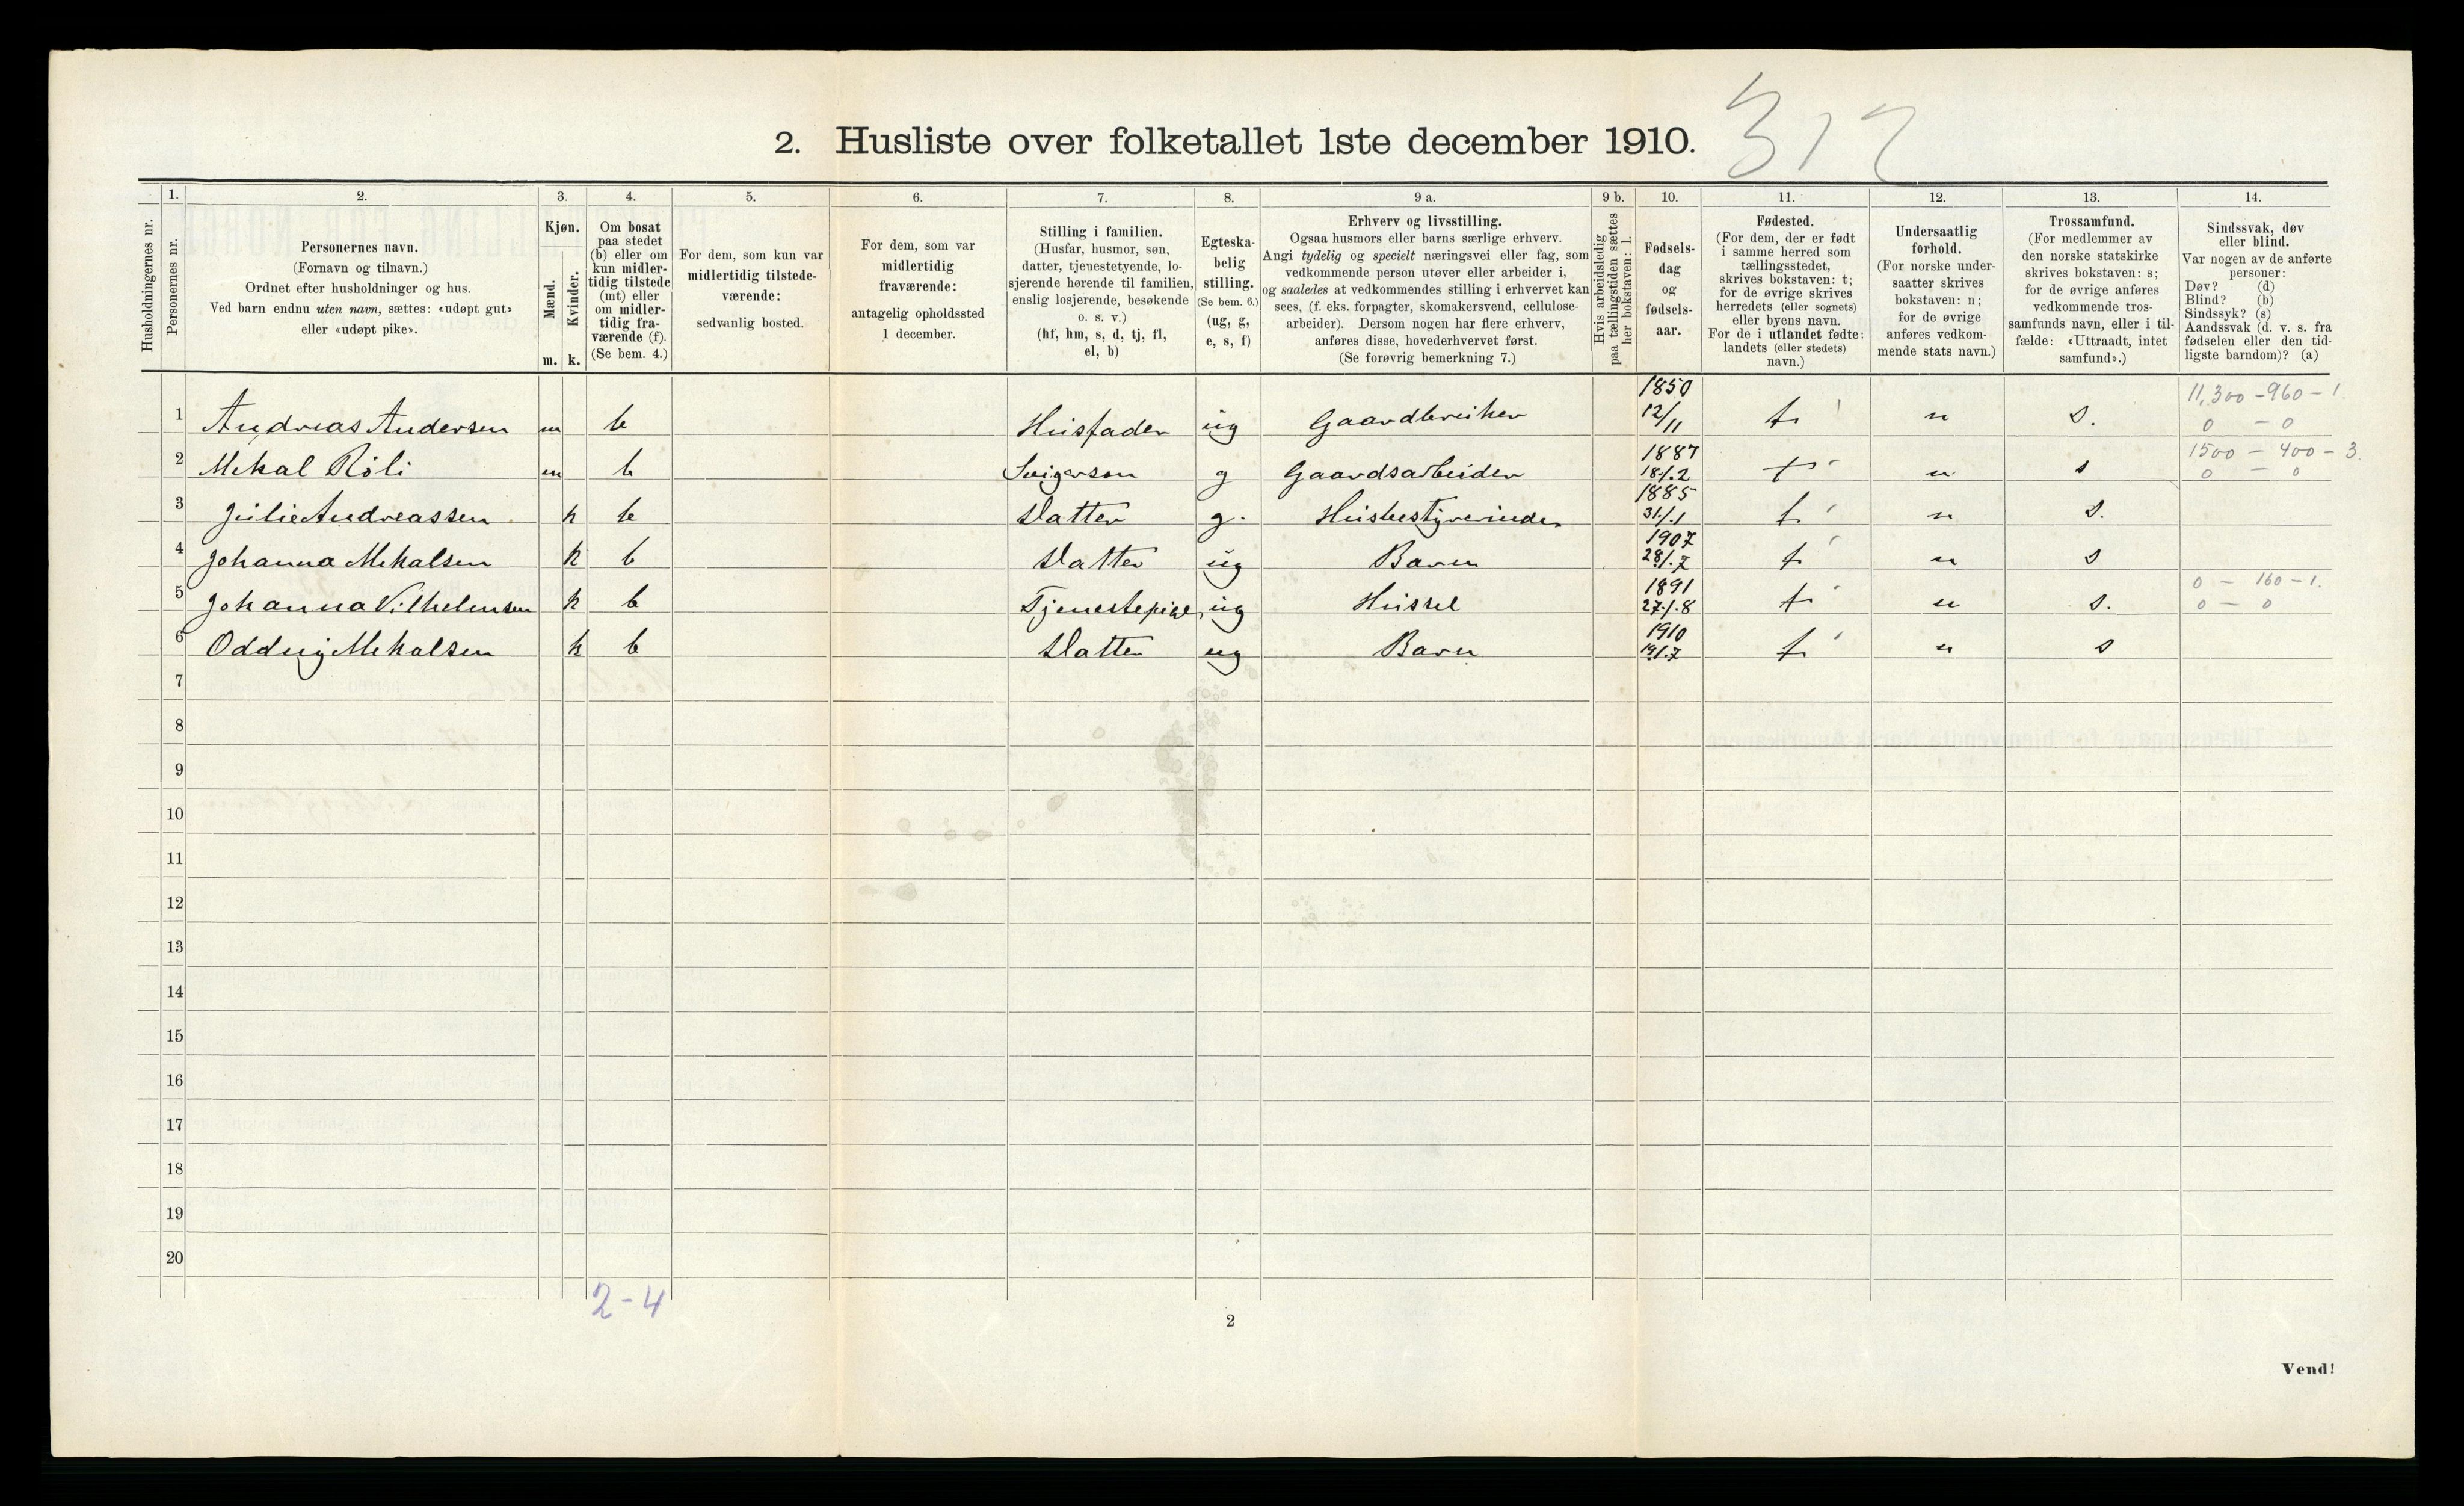 2. Husliste over folketallet 1ste december 1910.
312
Husholdningernes nr.
1. Personernes nr.
2. Personernes navn. (Fornavn og tilnavn.) Ordnet efter husholdninger og hus. Ved barn endnu uten navn, sættes: «udøpt gut» eller «udøpt pike».
3. Kjøn. Mænd. m. Kvinder. k.
4. Om bosat paa stedet (b) eller om kun midlertidig tilstede (mt) eller om midlertidig fraværende (f). (Se bem. 4.)
5. For dem, som kun var midlertidig tilstedeværende: sedvanlig bosted.
6. For dem, som var midlertidig fraværende: antagelig opholdssted 1 december.
7. Stilling i familien. (Husfar, husmor, søn, datter, tjenestetyende, losjerende hørende til familien, enslig losjerende, besøkende o. s. v.) (hf, hm, s, d, tj, fl, el, b)
8. Egteskabelig stilling. (Se bem. 6.) (ug, g, e, s, f)
9 a. Erhverv og livsstilling. Ogsaa husmors eller barns særlige erhverv. Angi tydelig og specielt næringsvei eller fag, som vedkommende person utøver eller arbeider i, og saaledes at vedkommendes stilling i erhvervet kan sees, (f. eks. forpagter, skomakersvend, cellulosearbeider). Dersom nogen har flere erhverv, anføres disse, hovederhvervet først. (Se forøvrig bemerkning 7.)
9 b. Hvis arbeidsledig paa tællingstiden sættes her bokstaven: l.
10. Fødselsdag og fødselsaar.
11. Fødested. (For dem, der er født i samme herred som tællingsstedet, skrives bokstaven: t; for de øvrige skrives herredets (eller sognets) eller byens navn. For de i utlandet fødte: landets (eller stedets) navn.)
12. Undersaatlig forhold. (For norske undersaatter skrives bokstaven: n; for de øvrige anføres vedkommende stats navn.)
13. Trossamfund. (For medlemmer av den norske statskirke skrives bokstaven: s; for de øvrige anføres vedkommende trossamfunds navn, eller i tilfælde: «Uttraadt, intet samfund».)
14. Sindssvak, døv eller blind. Var nogen av de anførte personer: Døv? (d) Blind? (b) Sindssyk? (s) Aandssvak (d. v. s. fra fødselen eller den tidligste barndom)? (a)
1 Andreas Andersen m b Husfader ug Gaardbruker 1850 12/11 t n s. 11,300 - 960 - 1 0 - 0
2 Mekal Röli m b Svigersøn g Gaardsarbeider 1887 18/.2 t n s 1500 - 400 - 3. 0 - 0
3 Julie Andreassen k b Datter g. Husbestyrerinde 1885 31/.1 t n s.
4 Johanna Mekalsen k b Datter ug Barn 1907 28/.7 t n s
5 Johanna Vilhelmsen k b Tjenestepige ug Hussel 1891 27/.8 t n s. 0 - 160 - 1. 0 - 0
6 Oddny Mekalsen k b Datter ug Barn 1910 19/.7 t n s
7
8
9
10
11
12
13
14
15
16
17
18
19
20
2-4
2
Vend!